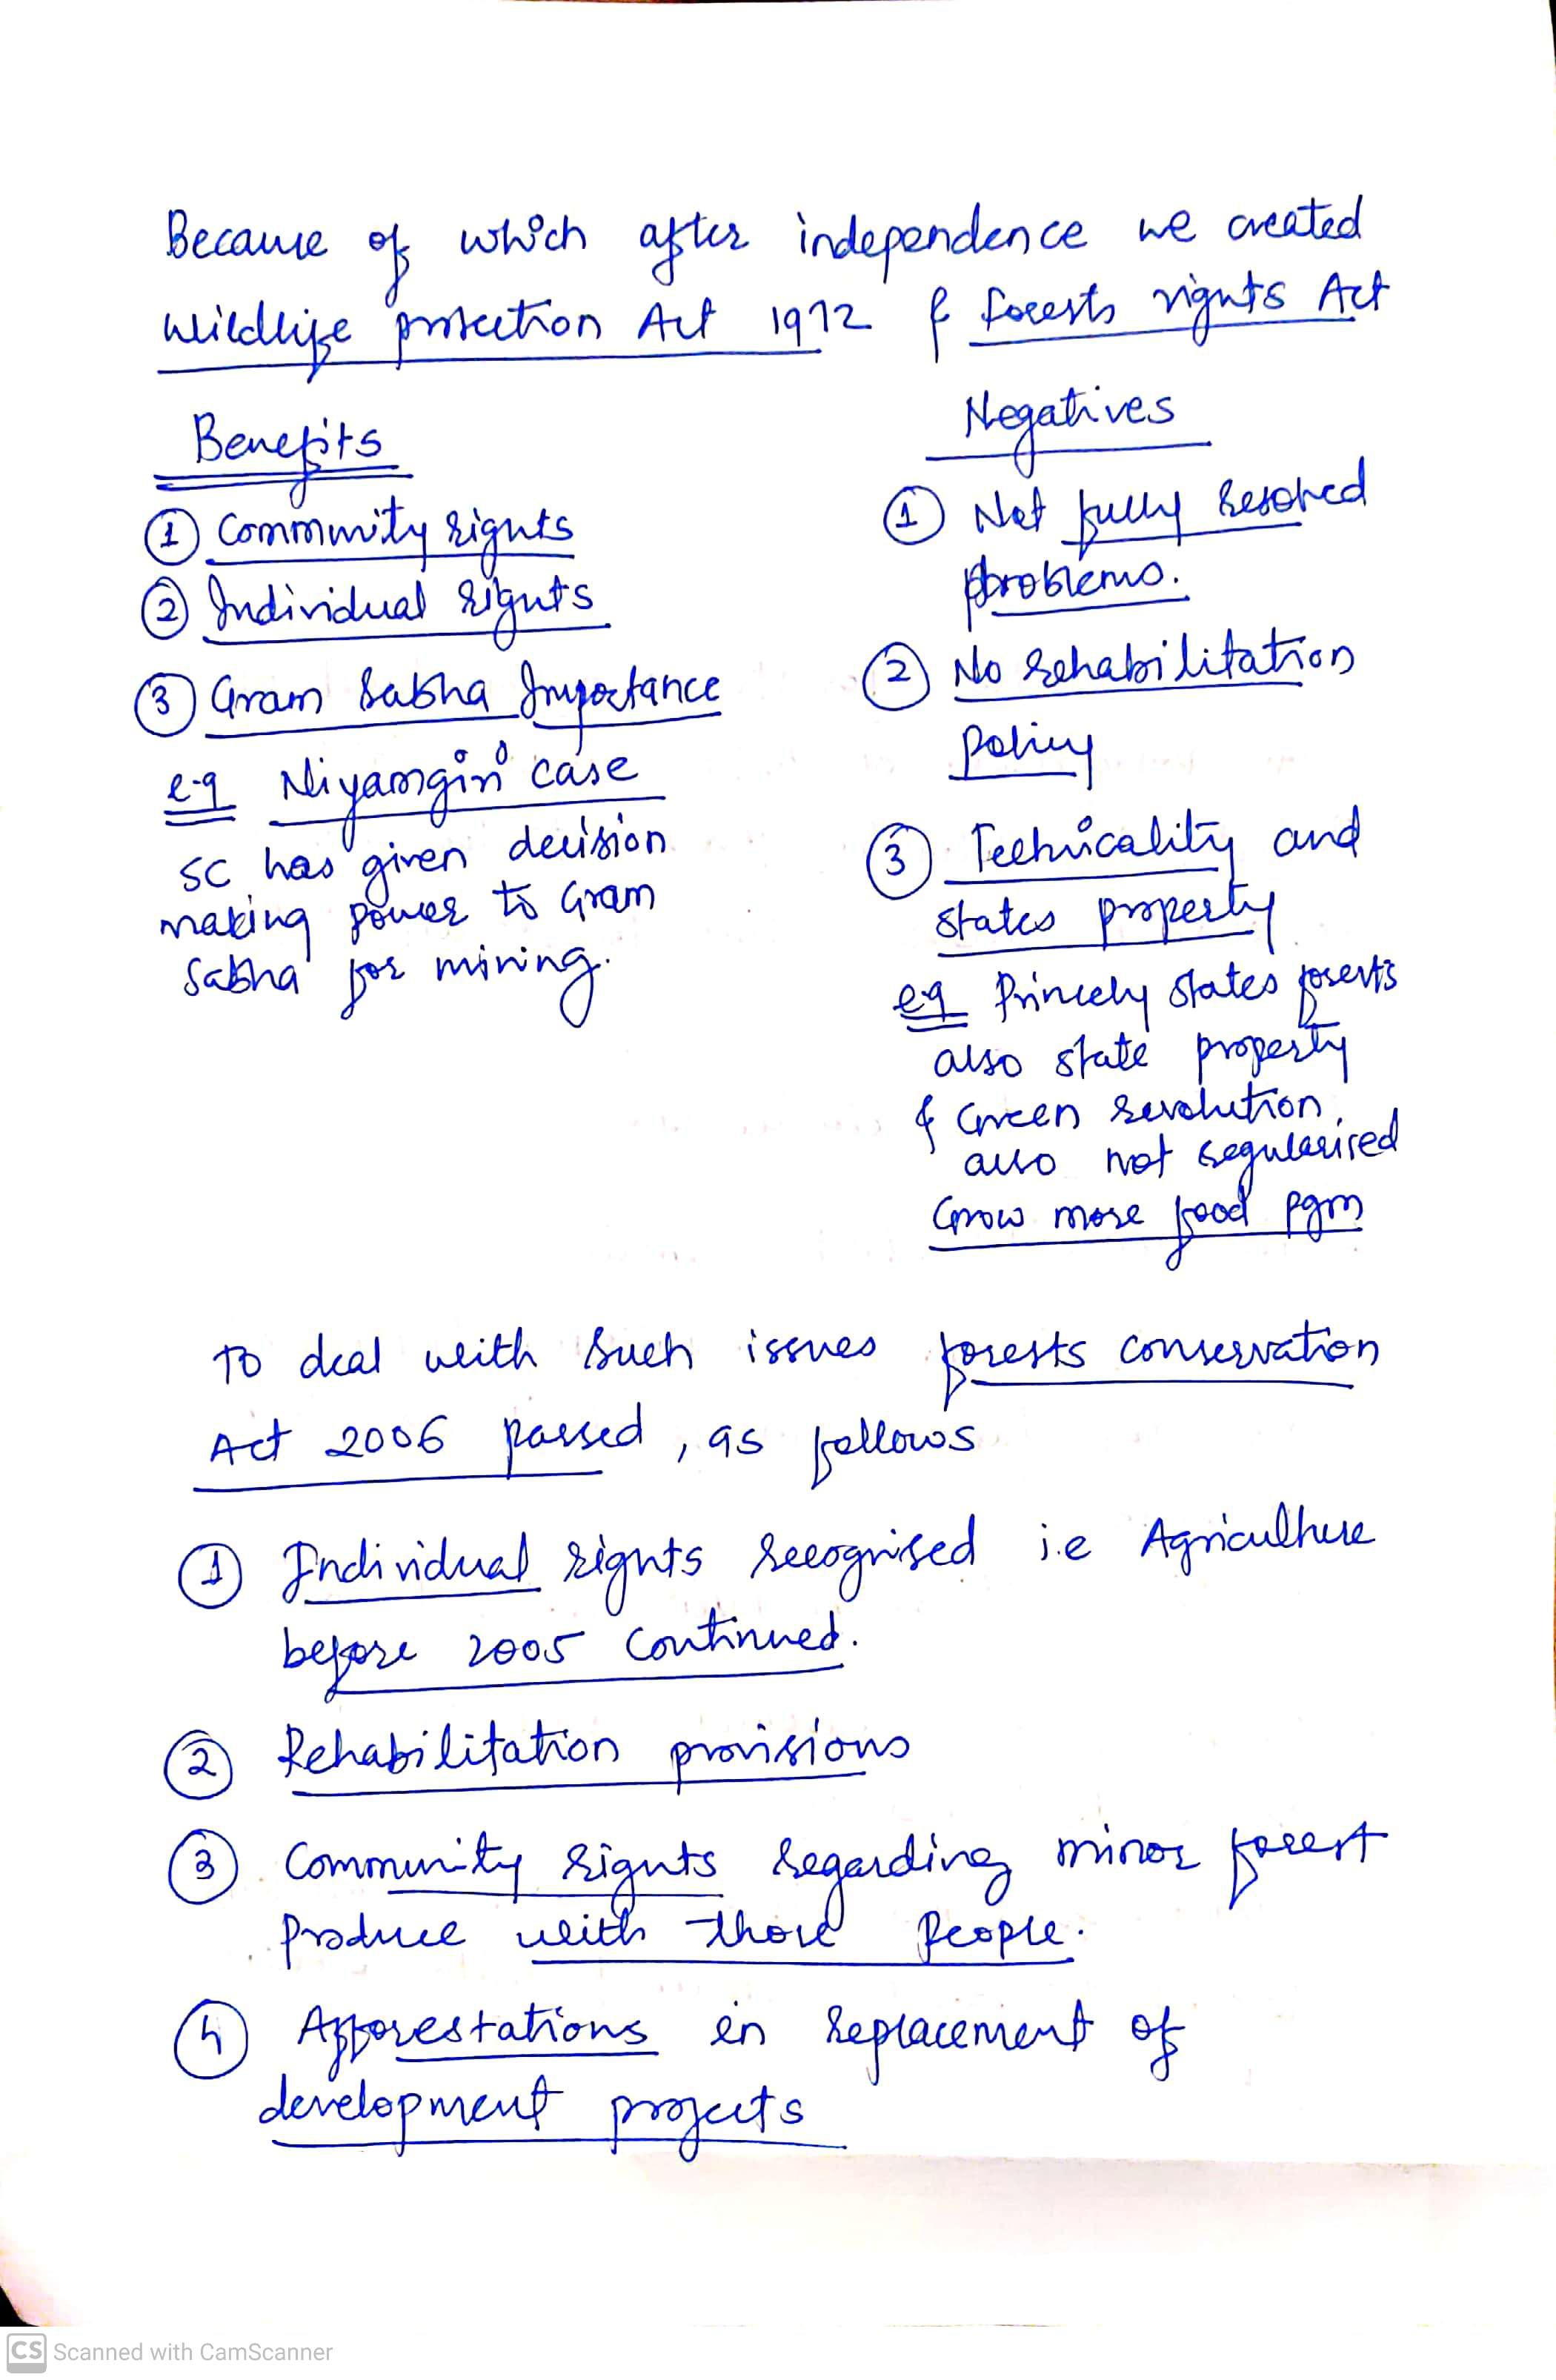 Because of which after independence we created
Wildlife protection Act 1972 & forests rights Act
Benefits
① Community rights
② Individual rights
③ Gram Sabha Importance
e.g Niyamgiri case
SC has given decision
making power to Gram
Sabha for mining.
Negatives
① Not fully resolved
problems.
② No rehabilitation
policy
③ Technicality and
states property
eg Princely states forests
also state property
& Green revolution,
also not regularised
Grow more food pgm
To deal with such issues forests conservation
Act 2006 passed, as follows
① Individual rights recognised i.e Agriculture
before 2005 continued.
② Rehabilitation provisions
③ Community rights regarding minor forest
produce with those people.
④ Afforestations in replacement of
development projects
CS Scanned with CamScanner